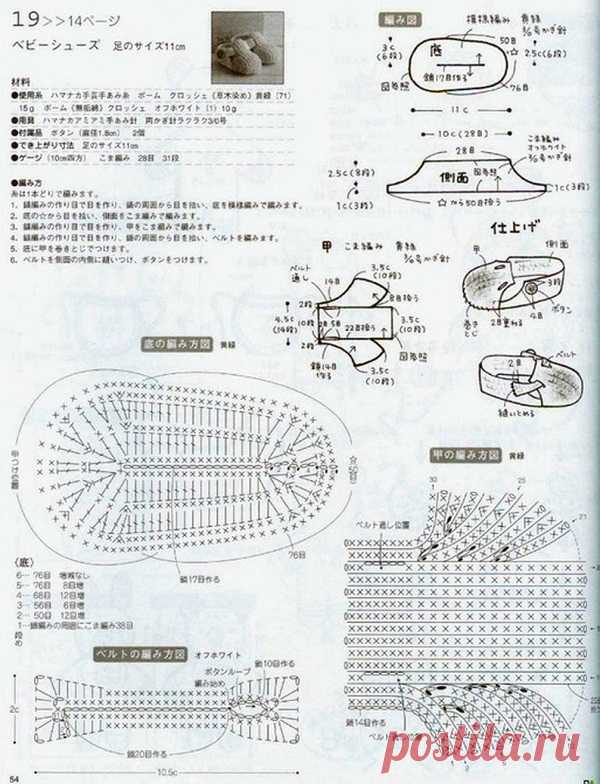 19>>14ページ
ベビーシューズ 足のサイズ11cm
材料
●使用糸 ハマナカ手芸手あみ糸 ポーム クロッシェ《草木染め》黄緑（71）
15g ポーム《無垢綿》クロッシェ オフホワイト（1）10g
●用具 ハマナカアミアミ手あみ針 両かぎ針ラクラク3/0号
●付属品 ボタン（直径1.8cm） 2個
●でき上がり寸法 足のサイズ11cm
●ゲージ（10cm四方） こま編み 28目 31段
●編み方
糸は1本どりで編みます。
1. 鎖編みの作り目で目を作り、鎖の周囲から目を拾い、底を模様編みで編みます。
2. 底の☆から目を拾い、側面をこま編みで編みます。
3. 鎖編みの作り目で目を作り、甲をこま編みで編みます。
4. 鎖編みの作り目で目を作り、鎖の周囲から目を拾い、ベルトを編みます。
5. 底に甲を巻きとじでつけます。
6. ベルトを側面の内側に縫いつけ、ボタンをつけます。
編み図
模様編み 黄緑
3/0号かぎ針
3c
(6段)
底
50目
2.5c(6段)
鎖17目作る
図参照
76目
11c
10c(28目)
こま編み
オフホワイト
3/0号かぎ針
28目
2.5c
(8段)
側面
図参照
1c(3段)
☆から50目拾う
1c(3段)
仕上げ
甲
側面
3段
4目
ボタン
巻きとじ
2目重ねる
2目
ベルト
縫いとめる
甲 こま編み 黄緑
3/0号かぎ針
ベルト
通し
14目
3.5c
(10段)
8目拾う
2段
4.5c
(14段)
10段
2目
5目
22目拾う
2段
鎖14目
作る
3.5c
(10段)
図参照
底の編み方図 黄緑
76目
鎖17目作る
〈底〉
6…76目 増減なし
5…76目 8目増
4…68目 12目増
3…56目 6目増
2…50目 12目増
1…鎖編みの周囲にこま編み38目
段 め
甲の編み方図 黄緑
30
25
21
ベルト通し位置
鎖14目作る
ベルトの編み方図 オフホワイト
鎖10目作る
ボタンループ
編み始め
2c
鎖20目作る
10.5c
54
postila.ru